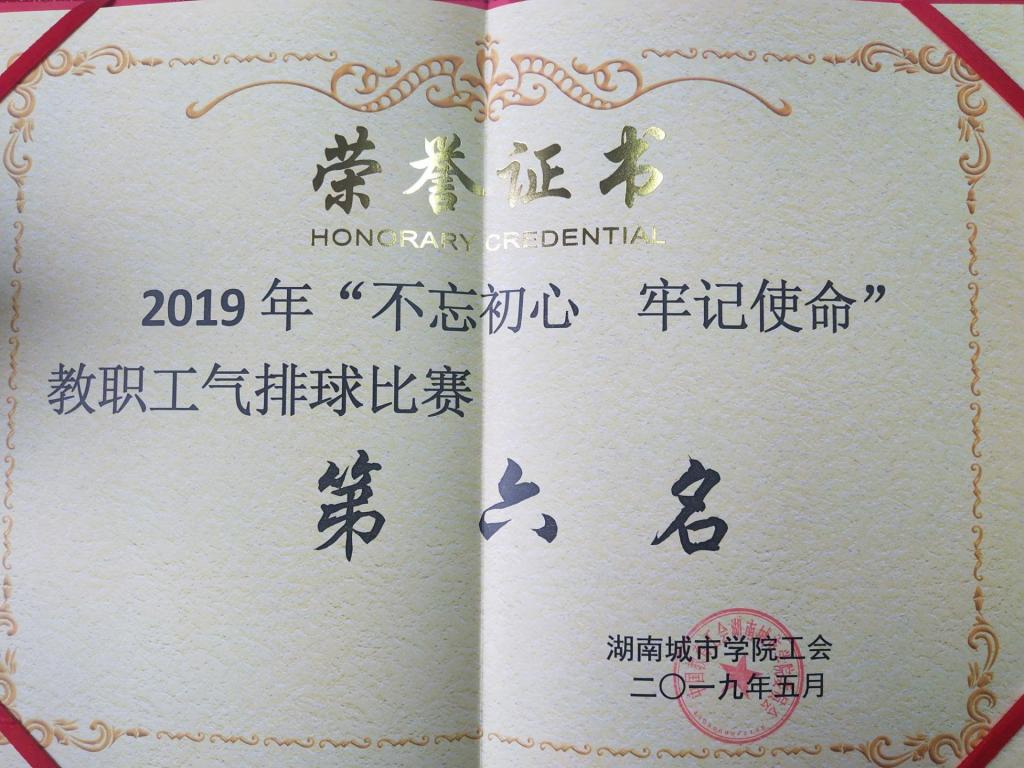 荣誉证书
HONORARY CREDENTIAL
2019年“不忘初心 牢记使命”
教职工气排球比赛
第六名
湖南城市学院工会
二〇一九年五月